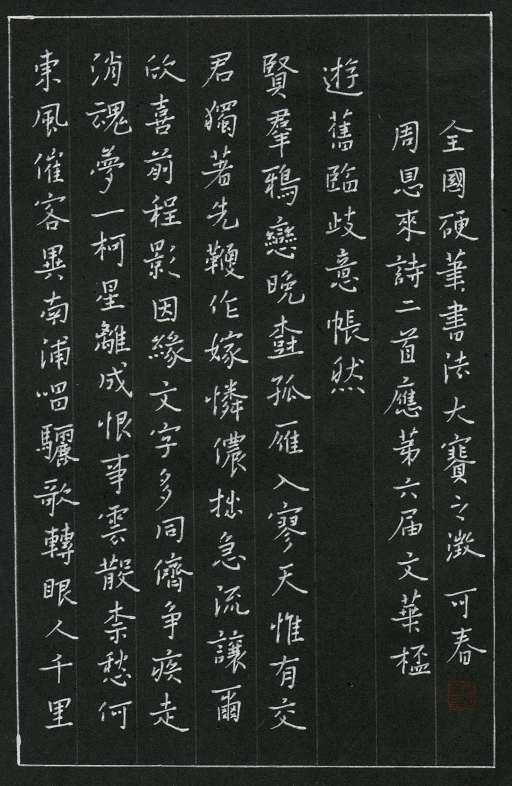 東風催客異南浦唱驪歌轉眼人千里
消魂夢一柯星離成恨事雲散柰愁何
欣喜前程影因緣文字多同儕爭疾走
君獨著先鞭作嫁憐儂拙急流讓爾
賢羣鴉戀晚樹孤雁入寥天惟有交
遊舊臨歧意悵然
周恩來詩二首應第六屆文華杯
全國硬筆書法大賽之徵 可春